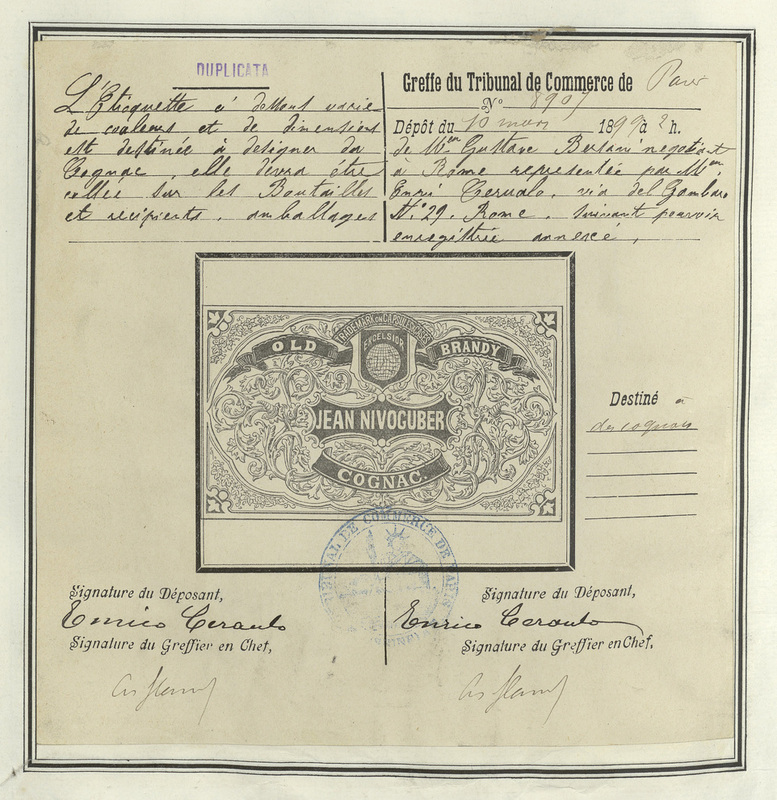 DUPLICATA
L'Etiquette ci dessous varie
de couleurs et de dimensions
est destinée à designer du
Cognac, elle devra être
collée sur les Boutailles
et recipients, amballages
Greffe du Tribunal de Commerce de Paris
N° 8907
Dépôt du 10 mars 1899 à 2 h.
de Mr Gustave negotiant
à Rome representée par Mr
Enrì via del Gambaro
N.° 29. Rome. Suivant pouvoir
enregittrée annexé.
TRADE MARK ON CAPSULES CASES
EXCELSIOR
OLD BRANDY
JEAN NIVOGUBER
COGNAC.
Destiné à
des cognacs
TRIBUNAL DE COMMERCE DE PARIS
Signature du Déposant,
Enrico Ceraulo
Signature du Greffier en Chef,
Signature du Déposant,
Enrico Ceraulo
Signature du Greffier en Chef,